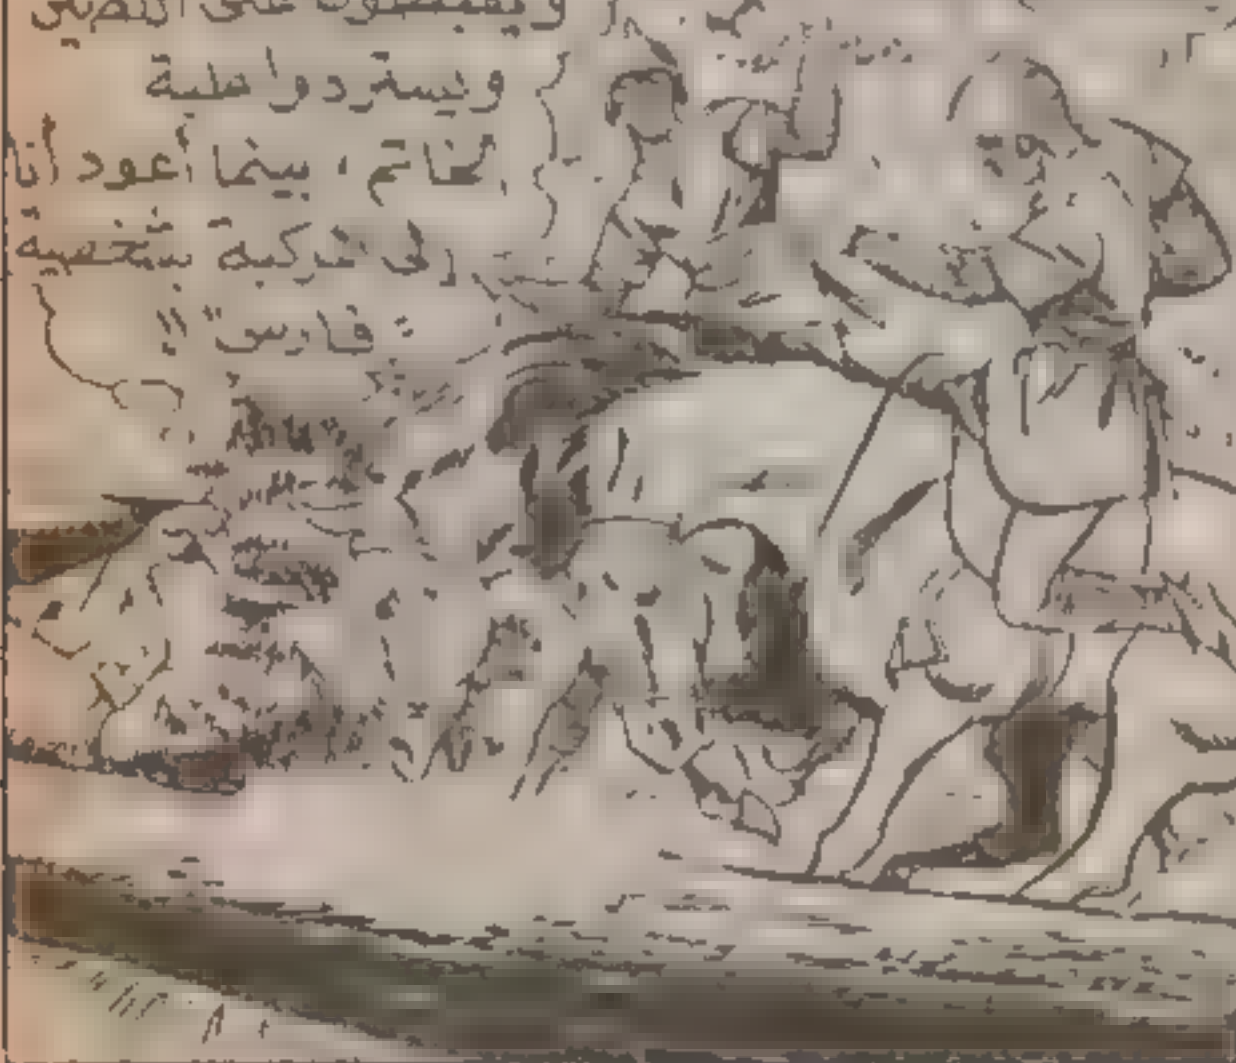 ويقبضون على اللصين
ويستردوا علبة
الخاتم ، بينما أعود أنا
إلى شركة شخصية
" فارس " !!